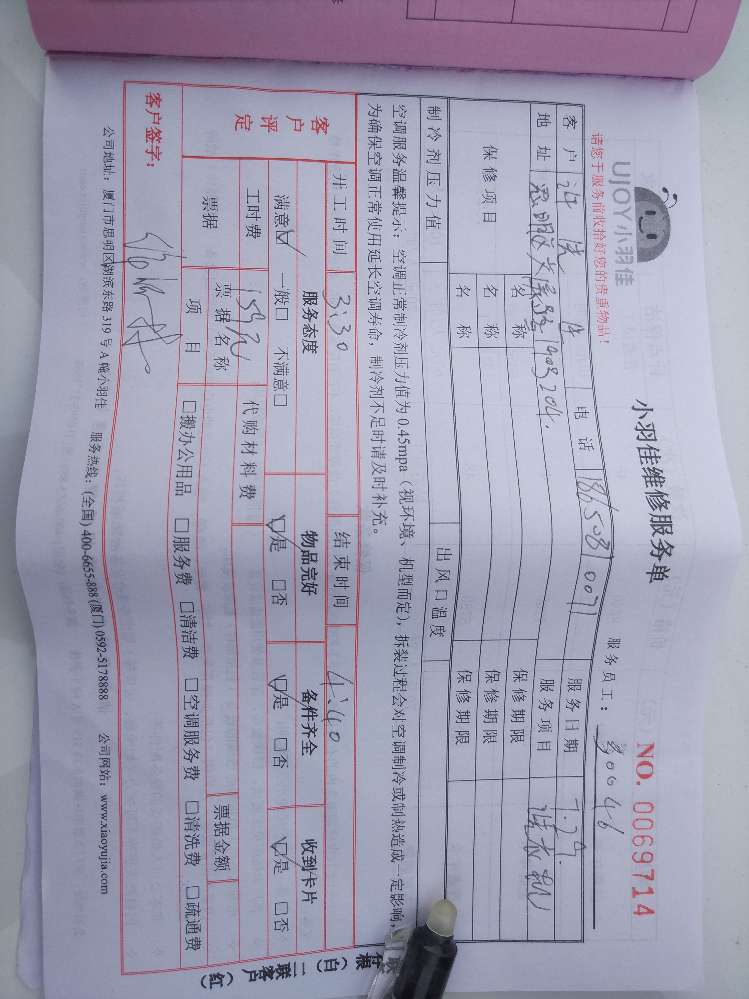 UJOY小羽佳
小羽佳维修服务单
NO. 0069714
请您于服务前收拾好您的贵重物品！
服务员工：
客户 电话 服务日期 7.29.
地址 服务项目 洗衣机
保修项目 名称 保修期限
名称 保修期限
名称 保修期限
制冷剂压力值 出风口温度
空调服务温馨提示：空调正常制冷剂压力值为0.45mpa（视环境、机型而定），拆装过程会对空调制冷或制热造成一定影响，
为确保空调正常使用延长空调寿命，制冷剂不足时请及时补充。
开工时间 3:30 结束时间 4:40
客户评定 服务态度 物品完好 备件齐全 收到卡片
满意☑ 一般□ 不满意□ ☑是 □否 ☑是 □否 ☑是 □否
工时费 159元 代购材料费
票据 票据名称 票据金额
项目 □搬办公用品 □服务费 □清洁费 □空调服务费 □清洗费 □疏通费
客户签字：
公司地址：厦门市思明区湖滨东路319号A幢小羽佳 服务热线：(全国) 400-6655-888 (厦门) 0592-5178888 公司网站：www.xiaoyujia.com
存根（白）二联客户（红）